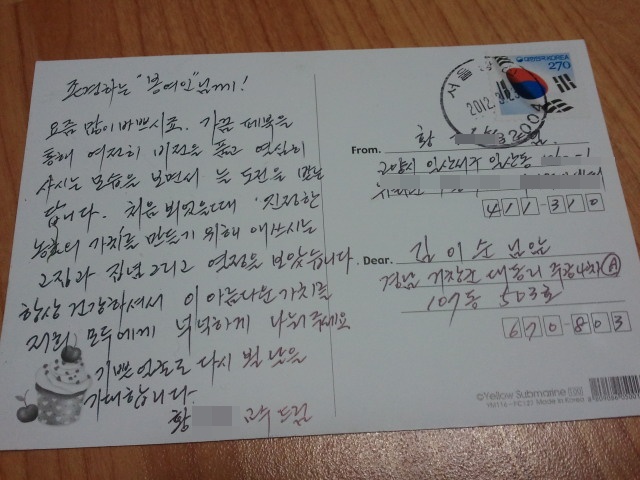 존경하는 "봉여인"님께!
요즘 많이 바쁘시죠. 가끔 페북을
통해 여전히 비전을 품고 열심히
사시는 모습을 보면서 늘 도전을 받는
답니다. 처음 뵈었을때 진정한
농업의 가치를 만들기 위해 애쓰시는
고집과 집념 그리고 열정을 보았습니다.
항상 건강하셔서 이 아름다운 가치를
저희 모두에게 넉넉하게 나눠주세요
기쁜 얼굴로 다시 뵐 날을
기대합니다.
황 드림
대한민국 KOREA
270
서울
2012. 3.
From. 황
고양시 일산서구 일산동
411-310
Dear. 김이순 님앞
경남 거창군 대동리 주공4차 A
107동 503호
670-803
©Yellow Submarine
Made in Korea